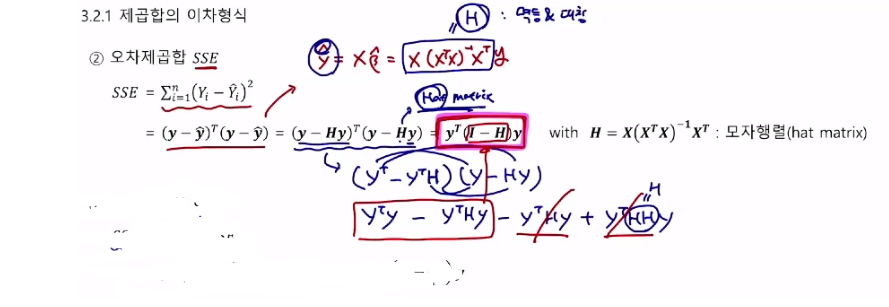 3.2.1 제곱합의 이차형식
H : 멱등 & 대칭
② 오차제곱합 SSE
ŷ = Xβ̂ = X(XᵀX)⁻¹Xᵀy
SSE = ∑ᵢ₌₁ⁿ(Yᵢ − Ŷᵢ)²
Hat matrix
= (y − ŷ)ᵀ(y − ŷ) = (y − Hy)ᵀ(y − Hy) = yᵀ(I − H)y with H = X(XᵀX)⁻¹Xᵀ : 모자행렬(hat matrix)
(yᵀ − yᵀH)(y − Hy)
H
yᵀy − yᵀHy − yᵀHy + yᵀHHy